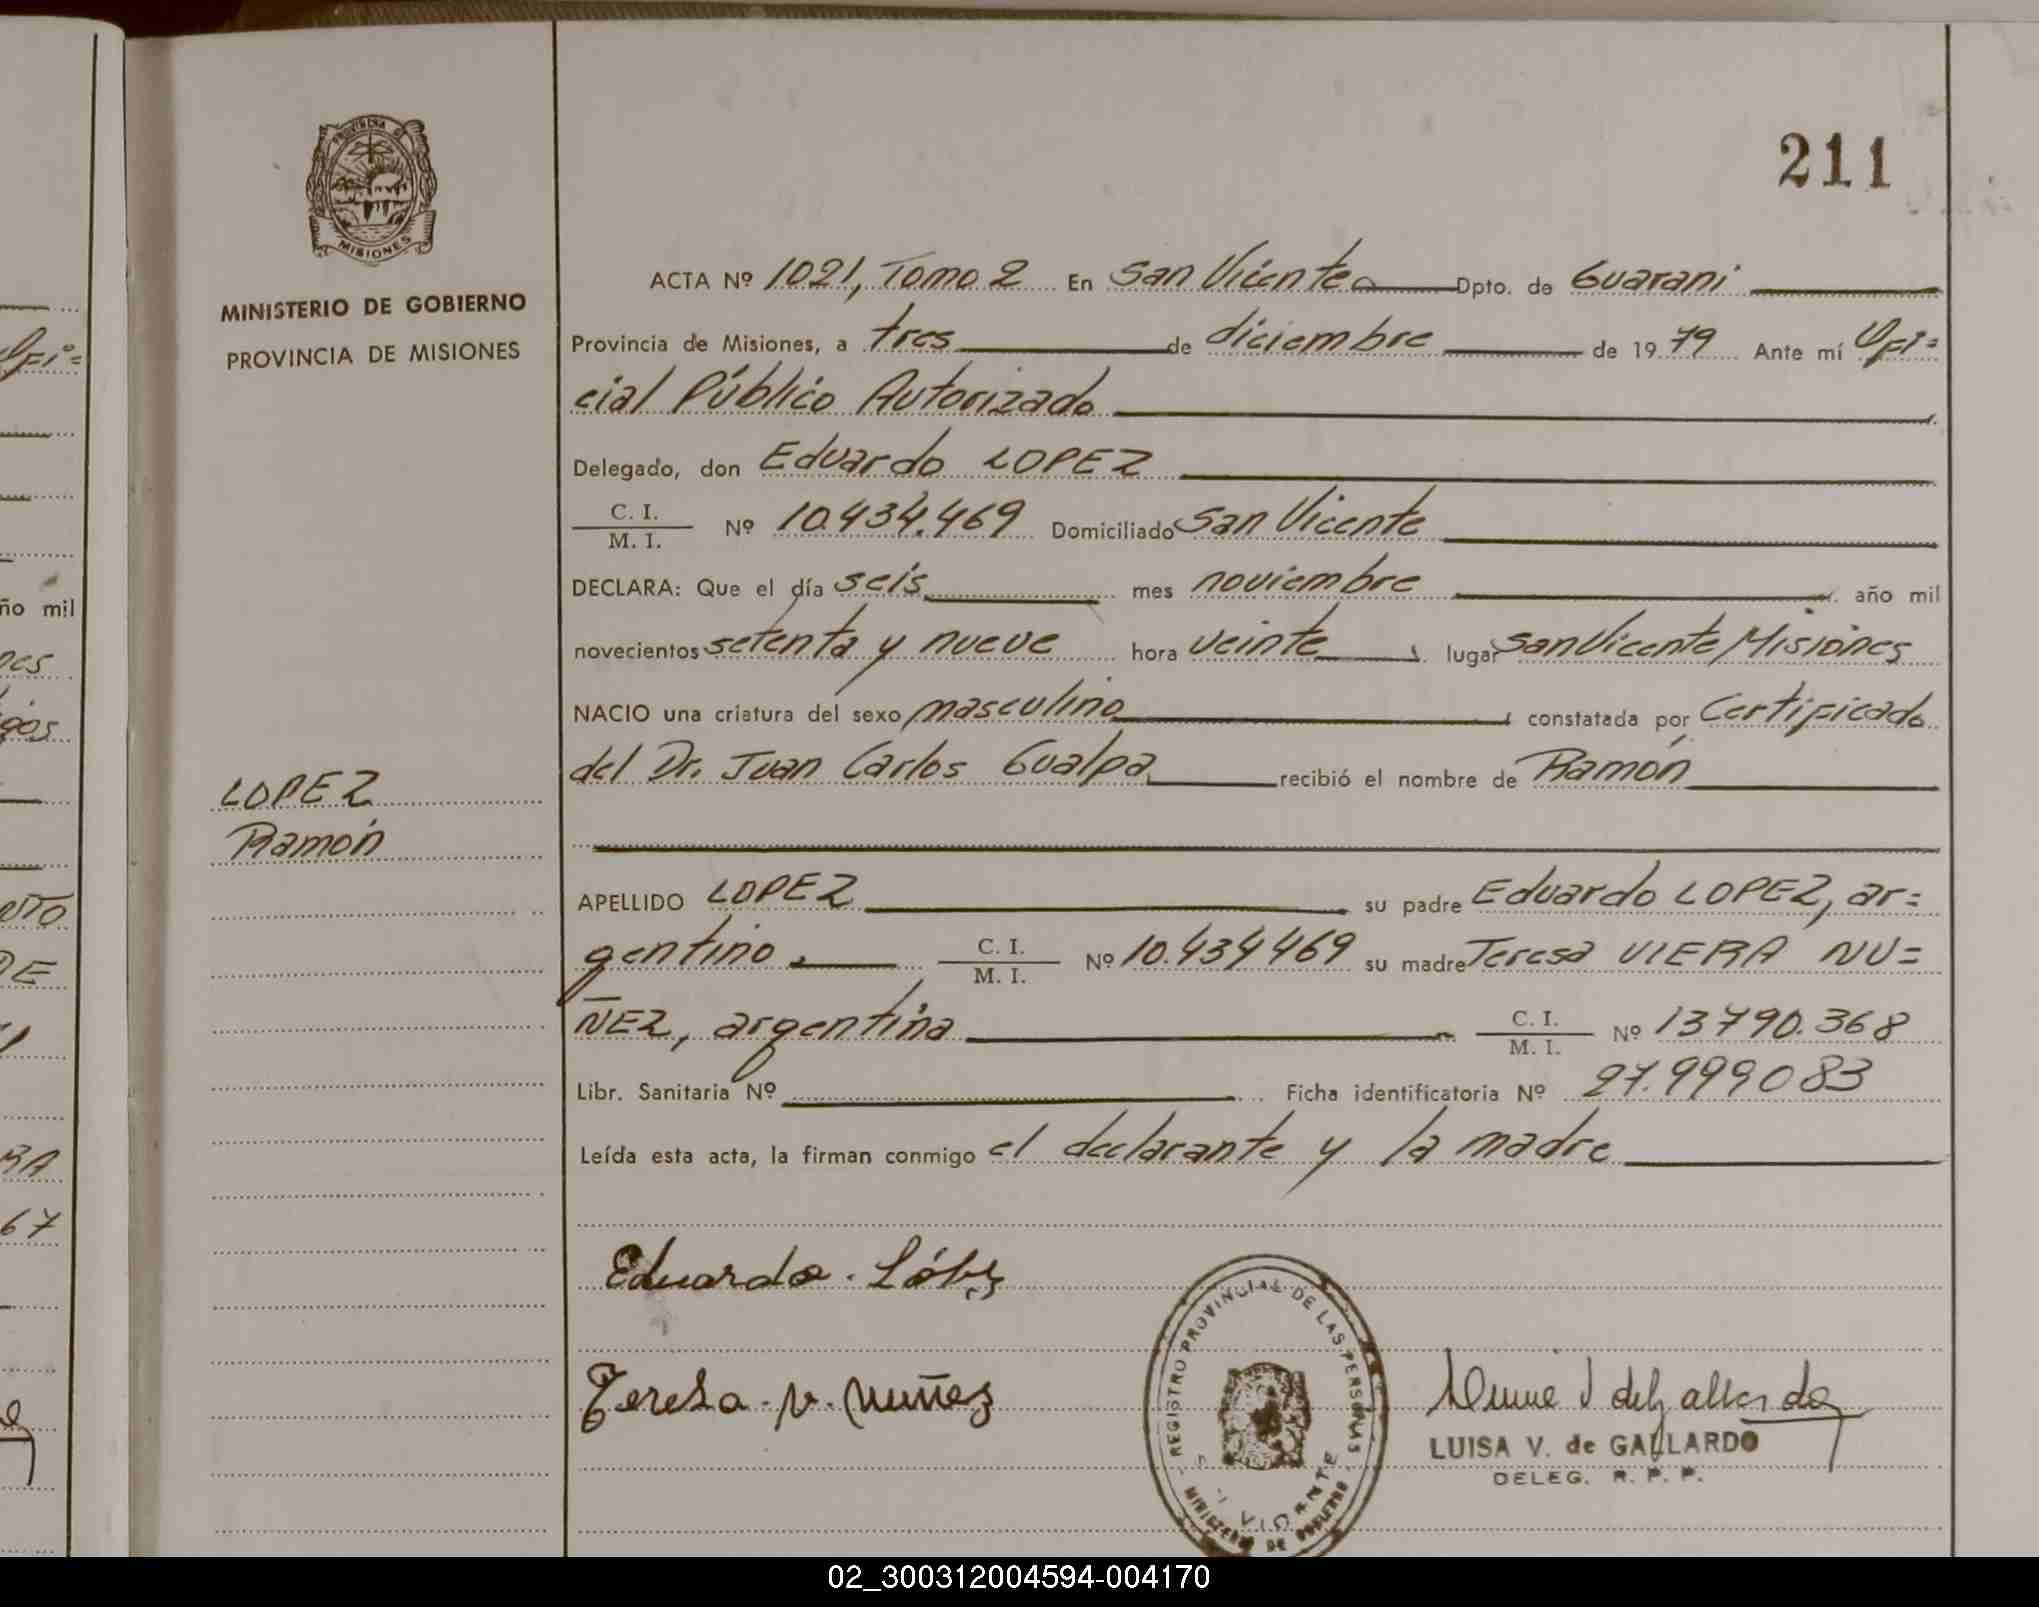 211
PROVINCIA D
MISIONES
MINISTERIO DE GOBIERNO
PROVINCIA DE MISIONES
LOPEZ
Ramón
ACTA Nº 1021, Tomo 2 En San Vicente Dpto. de Guaraní
Provincia de Misiones, a tres de diciembre de 1979 Ante mí Ofi=
cial Público Autorizado
Delegado, don Eduardo LOPEZ
C. I.
M. I. Nº 10.434.469 Domiciliado San Vicente
DECLARA: Que el día seis mes noviembre año mil
novecientos setenta y nueve hora veinte lugar San Vicente Misiones
NACIO una criatura del sexo masculino constatada por Certificado
del Dr. Juan Carlos Gualpa recibió el nombre de Ramón
APELLIDO LOPEZ su padre Eduardo LOPEZ, ar=
gentino, C. I.
M. I. Nº 10.434469 su madre Teresa VIERA NU=
ÑEZ, argentina C. I.
M. I. Nº 13790.368
Libr. Sanitaria Nº Ficha identificatoria Nº 27.999083
Leída esta acta, la firman conmigo el declarante y la madre
Eduardo. López
Teresa. v. nuñez
REGISTRO PROVINCIAL DE LAS PERSONAS
MINISTERIO DE GOBIERNO
LUISA V. de GALLARDO
DELEG. R. P. P.
ño mil
67
02_300312004594-004170